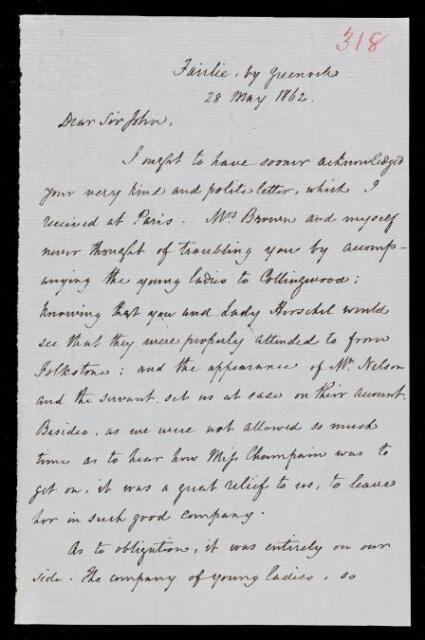 318
Fairlie, by Greenock
28 May 1862.
Dear Sir John,
I ought to have sooner acknowledged
your very kind and polite letter, which I
received at Paris. Mrs Brown and myself
never thought of troubling you by accomp-
anying the young ladies to Collingwood;
knowing that you and Lady Herschel would
see that they were properly attended to from
Folkstone; and the appearance of Mr. Nelson
and the servant, set us at ease on their account.
Besides, as we were not allowed so much
time as to hear how Miss Champain was to
get on, it was a great relief to us, to leave
her in such good company.
As to obligation, it was entirely on our
side. The company of young ladies, so